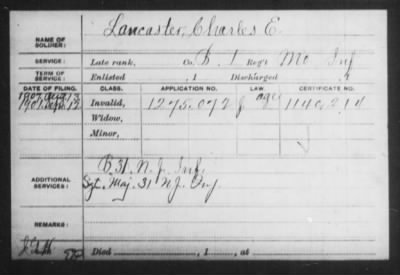 Lancaster, Charles E.
NAME OF SOLDIER:
SERVICE: Late rank, Co. D. 1 Reg't Mo Inf
TERM OF SERVICE: Enlisted , 1 Discharged , 1
DATE OF FILING. CLASS. APPLICATION NO. LAW. CERTIFICATE NO.
Invalid, 1275.072 age 1140.214
Widow,
Minor,
ADDITIONAL SERVICES:
B 31. N.J. Inf.
Sgt. Maj. 31 N.J. Inf
REMARKS:
Died , 1 , at